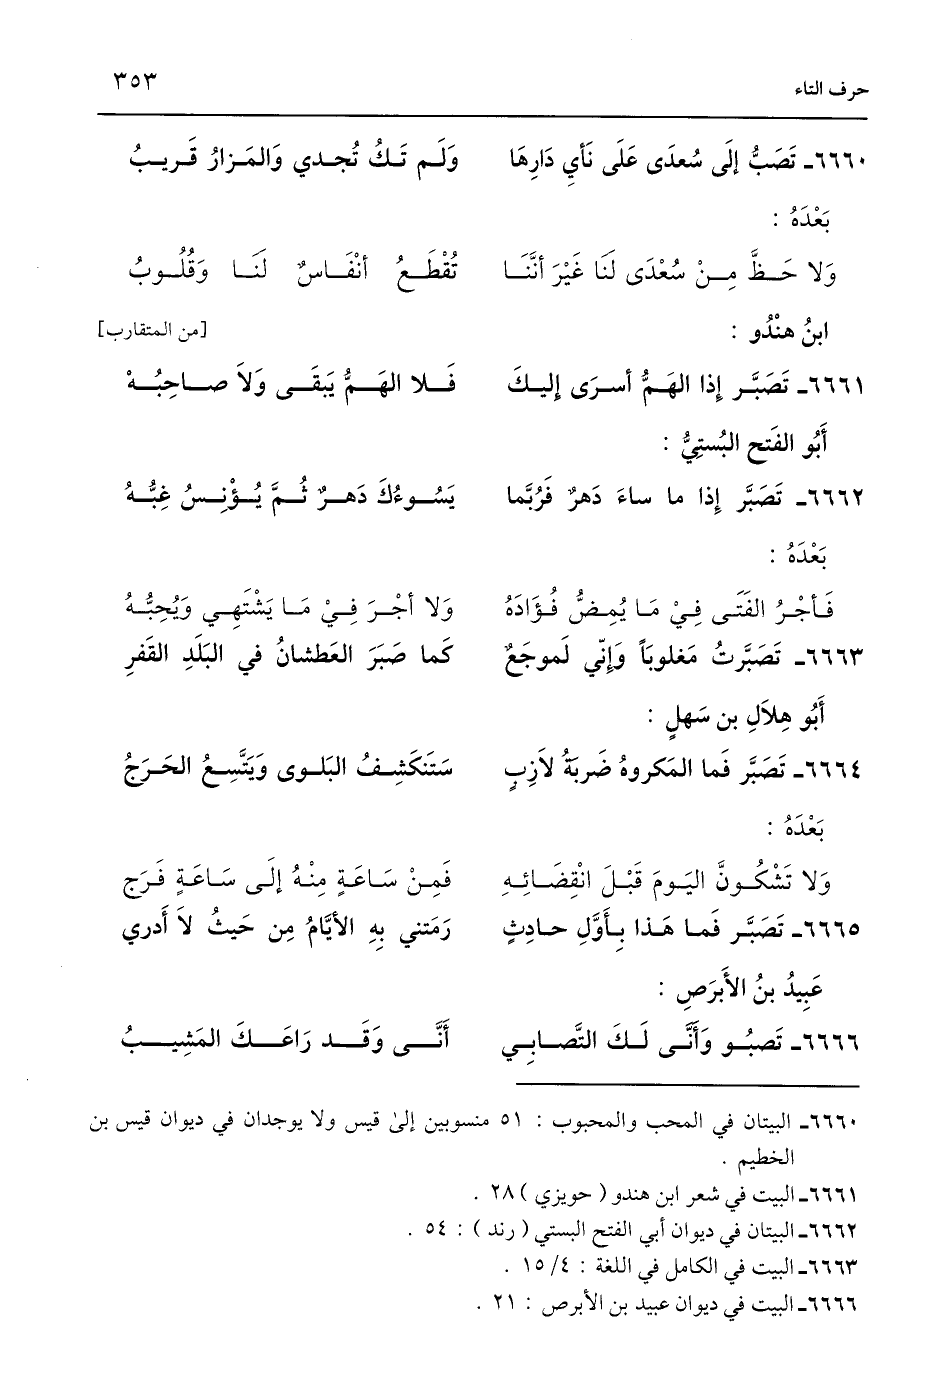 حرف التاء ٣٥٣
٦٦٦٠ـ تَصَبُّ إلَى سُعدَى عَلَى نَأيِ دَارِهَا وَلَم تَكُ تُجدي وَالمَزارُ قَريبُ
بَعْدَهُ :
وَلا حَظَّ مِنْ سُعْدَى لَنَا غَيْرَ أنَّنَا تُقْطَعُ أنْفَاسٌ لَنَا وَقُلُوبُ
ابنُ هنْدُو : [من المتقارب]
٦٦٦١ـ تَصَبَّر إِذا الهَمُّ أسرَى إِليكَ فَلا الهَمُّ يَبقَى وَلاَ صاحِبُهْ
أَبُو الفَتح البُستِيُّ :
٦٦٦٢ـ تَصَبَّر إِذا ما ساءَ دَهرٌ فَرُبَّما يَسُوءُكَ دَهرٌ ثُمَّ يُؤْنِسُ غِبُّهُ
بَعْدَهُ :
فَأجْرُ الفَتَى فِيْ مَا يُمِضُّ فُؤَادَهُ وَلا أجْرَ فِيْ مَا يَشْتَهِي وَيُحِبُّهُ
٦٦٦٣ـ تَصَبَّرتُ مَغلوبَاً وَإنّي لَموجَعٌ كَما صَبَرَ العَطشانُ في البَلَدِ القَفرِ
أَبُو هِلاَلِ بن سَهلٍ :
٦٦٦٤ـ تَصَبَّر فَما المَكروهُ ضَربَةُ لاَزِبٍ سَتَنكَشِفُ البَلوى وَيَتَّسِعُ الحَرَجُ
بَعْدَهُ :
وَلا تَشْكُونَّ اليَومَ قَبْلَ انْقِضَائِهِ فَمِنْ سَاعَةٍ مِنْهُ إلَى سَاعَةٍ فَرَج
٦٦٦٥ـ تَصَبَّر فَما هَذا بِأَوَّلِ حادِثٍ رَمَتني بِهِ الأيَّامُ مِن حَيثُ لاَ أدري
عَبِيدُ بنُ الأَبرَصِ :
٦٦٦٦ـ تَصبُو وَأنَّى لَكَ التَّصابِي أَنَّى وَقَد رَاعَكَ المَشِيبُ
٦٦٦٠ـ البيتان في المحب والمحبوب : ٥١ منسوبين إلىٰ قيس ولا يوجدان في ديوان قيس بن
الخطيم .
٦٦٦١ـ البيت في شعر ابن هندو ( حويزي ) ٢٨ .
٦٦٦٢ـ البيتان في ديوان أبي الفتح البستي ( رند ) : ٥٤ .
٦٦٦٣ـ البيت في الكامل في اللغة : ٤/ ١٥ .
٦٦٦٦ـ البيت في ديوان عبيد بن الأبرص : ٢١ .